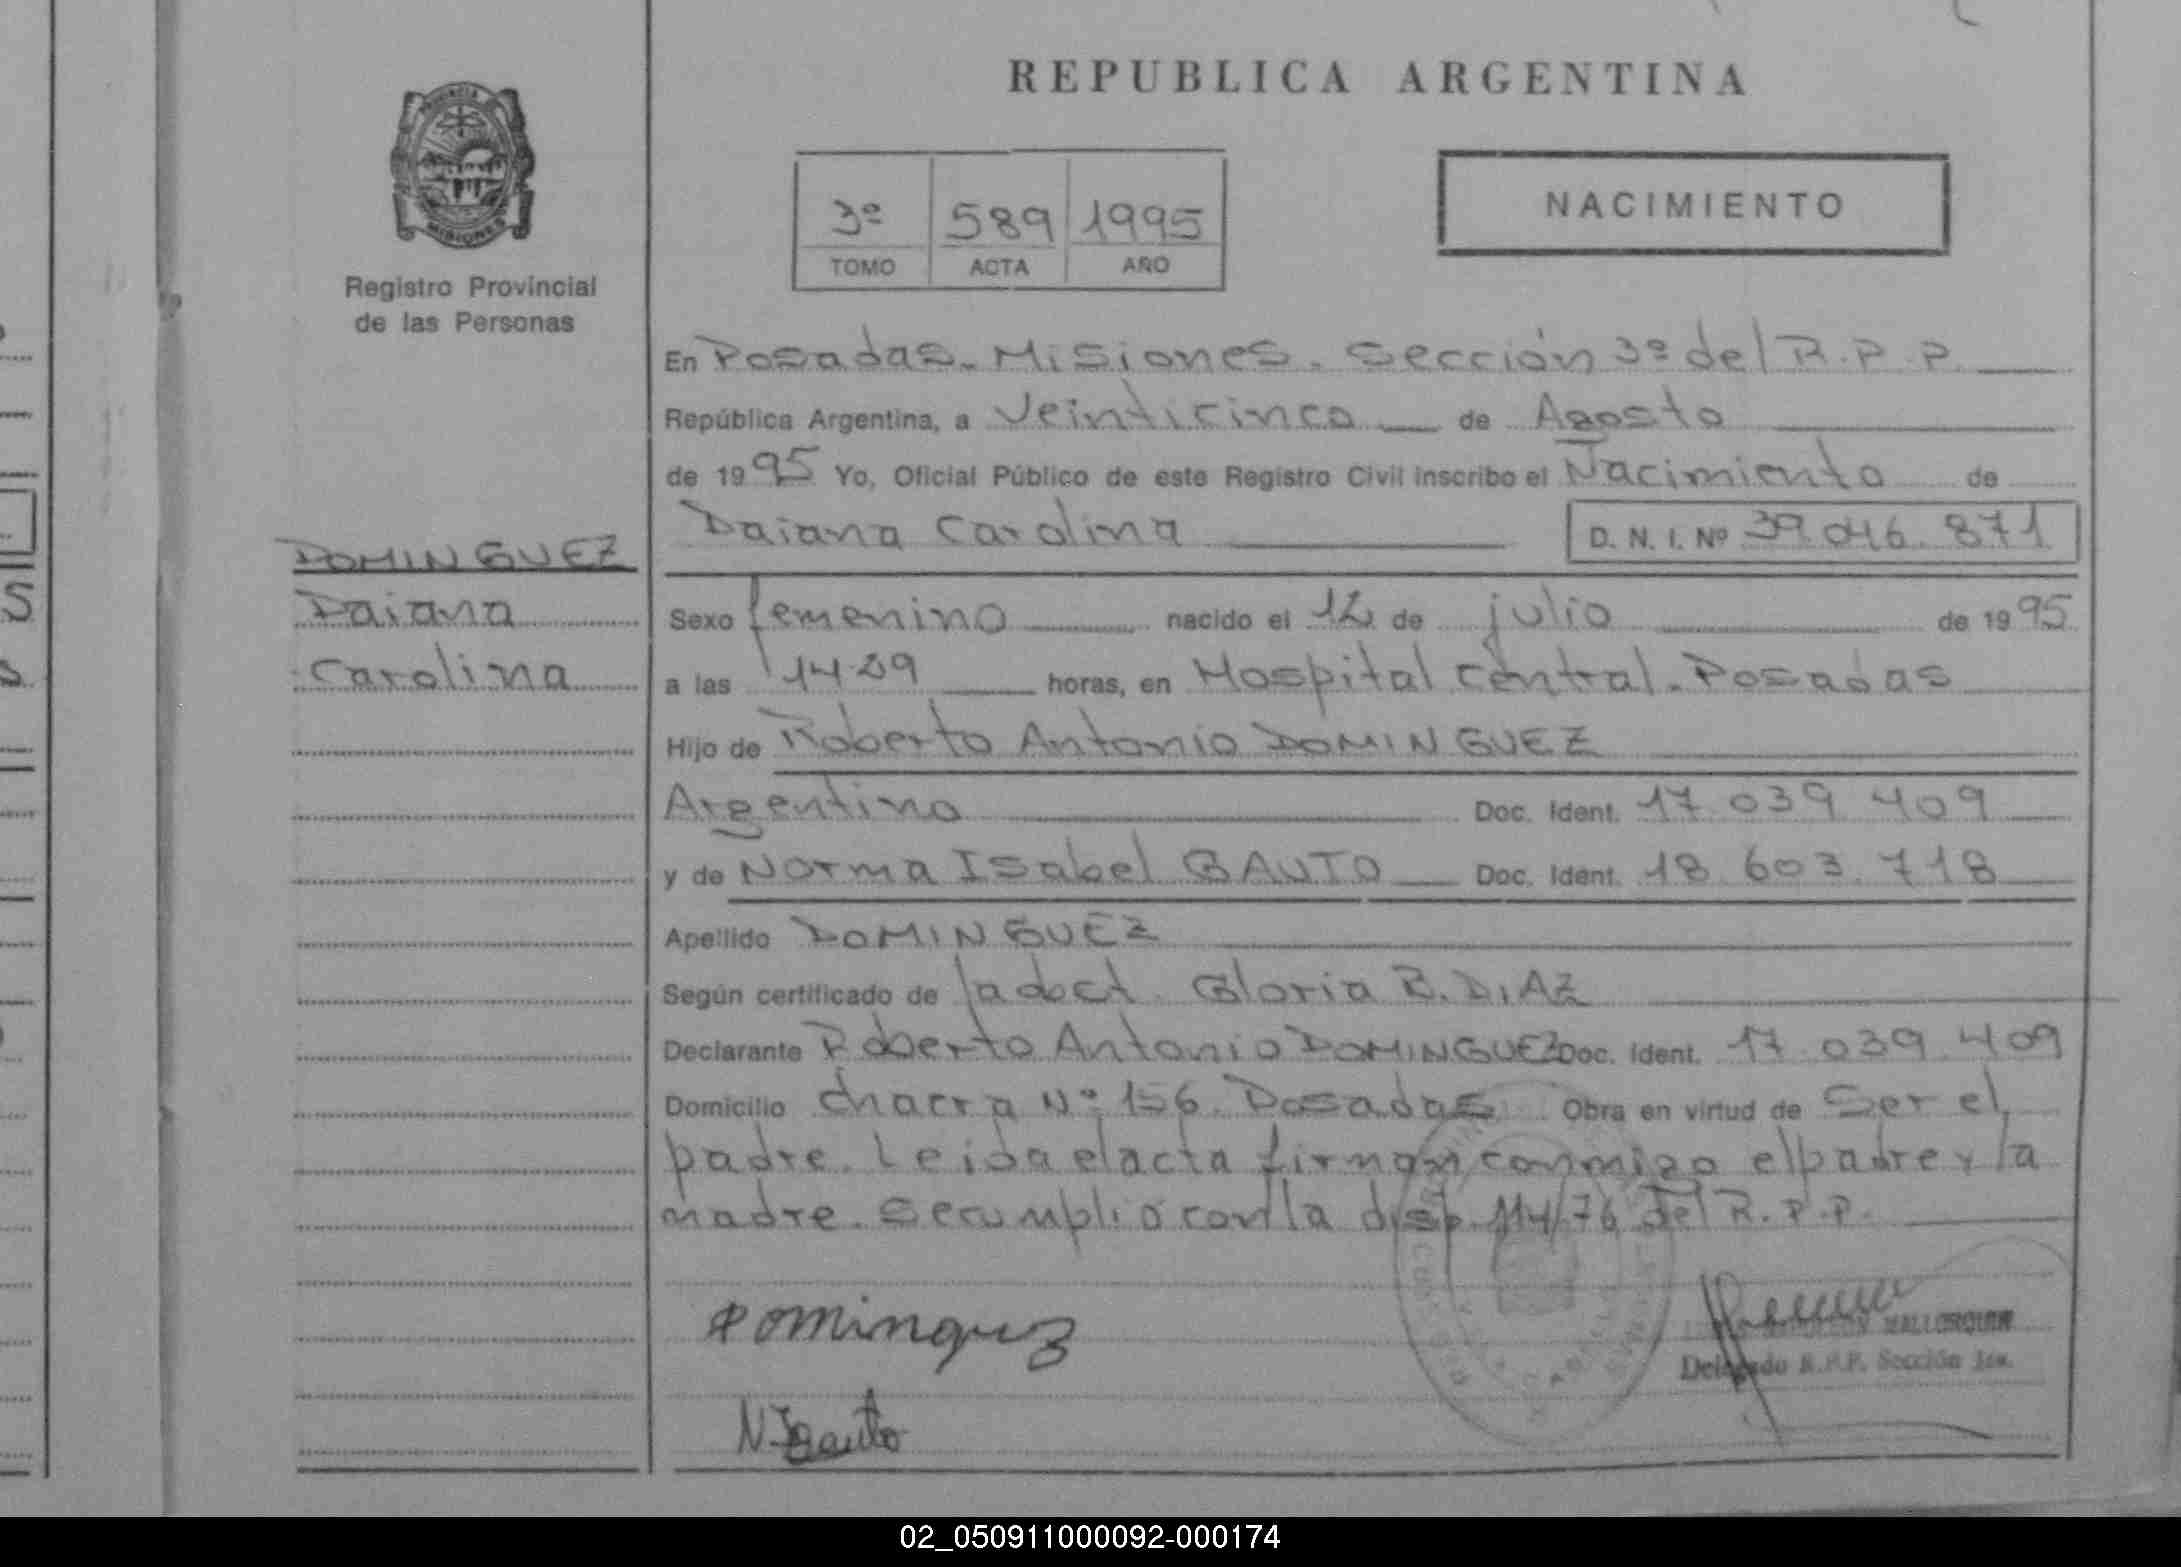 REPUBLICA ARGENTINA
PROVINCIA
MISIONES
Registro Provincial
de las Personas
3º 589 1995
TOMO ACTA AÑO
NACIMIENTO
En Posadas. Misiones. Sección 3º del R.P.P.
República Argentina, a Veinticinco de Agosto
de 1995 Yo, Oficial Público de este Registro Civil inscribo el Nacimiento de
Daiana Carolina D. N. I. Nº 39.046.871
DOMINGUEZ
Daiana
Carolina
Sexo femenino nacido el 12 de julio de 1995
a las 14.09 horas, en Hospital Central. Posadas
Hijo de Roberto Antonio DOMINGUEZ
Argentino Doc. Ident. 17.039.409
y de Norma Isabel BAUTO Doc. Ident. 18.603.718
Apellido DOMINGUEZ
Según certificado de la doct. Gloria B. DIAZ
Declarante Roberto Antonio DOMINGUEZ Doc. Ident. 17.039.409
Domicilio chacra Nº 156. Posadas Obra en virtud de Ser el
padre. Leida el acta firman conmigo el padre y la
madre. Se cumplió con la disp. 114/76 del R.P.P.
Dominguez
MALLORQUIN
Delegado R.P.P. Sección 3ra.
N.I Bauto
02_050911000092-000174